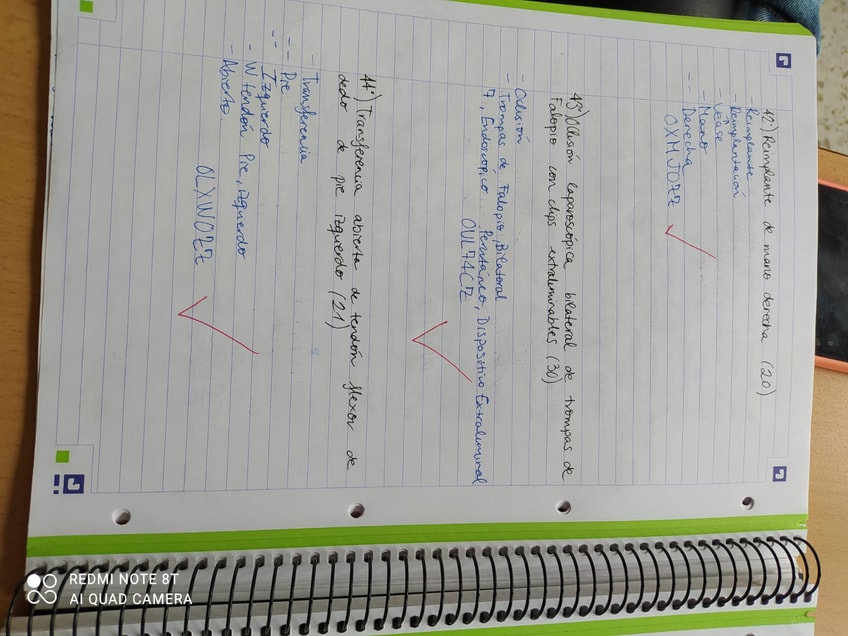 42º) Reimplante de mano derecha (20)
- Reimplante
- Reimplantación
- Véase
- Mano
-- Derecha
0XMJ0ZZ
43º) Oclusión laparoscópica bilateral de trompas de
Falopio con clips extraluminables (30)
- Oclusión
- Trompas de Falopio, Bilateral
7, Endoscópico Percutáneo, Dispositivo Extraluminal
0UL74CZ
44º) Transferencia abierta de tendón flexor de
dedo de pie izquierdo (21)
- Transferencia
-- Pie
-- Izquierdo
- W tendón Pie, izquierdo
- Abierto
0LXW0ZZ
REDMI NOTE 8T
AI QUAD CAMERA